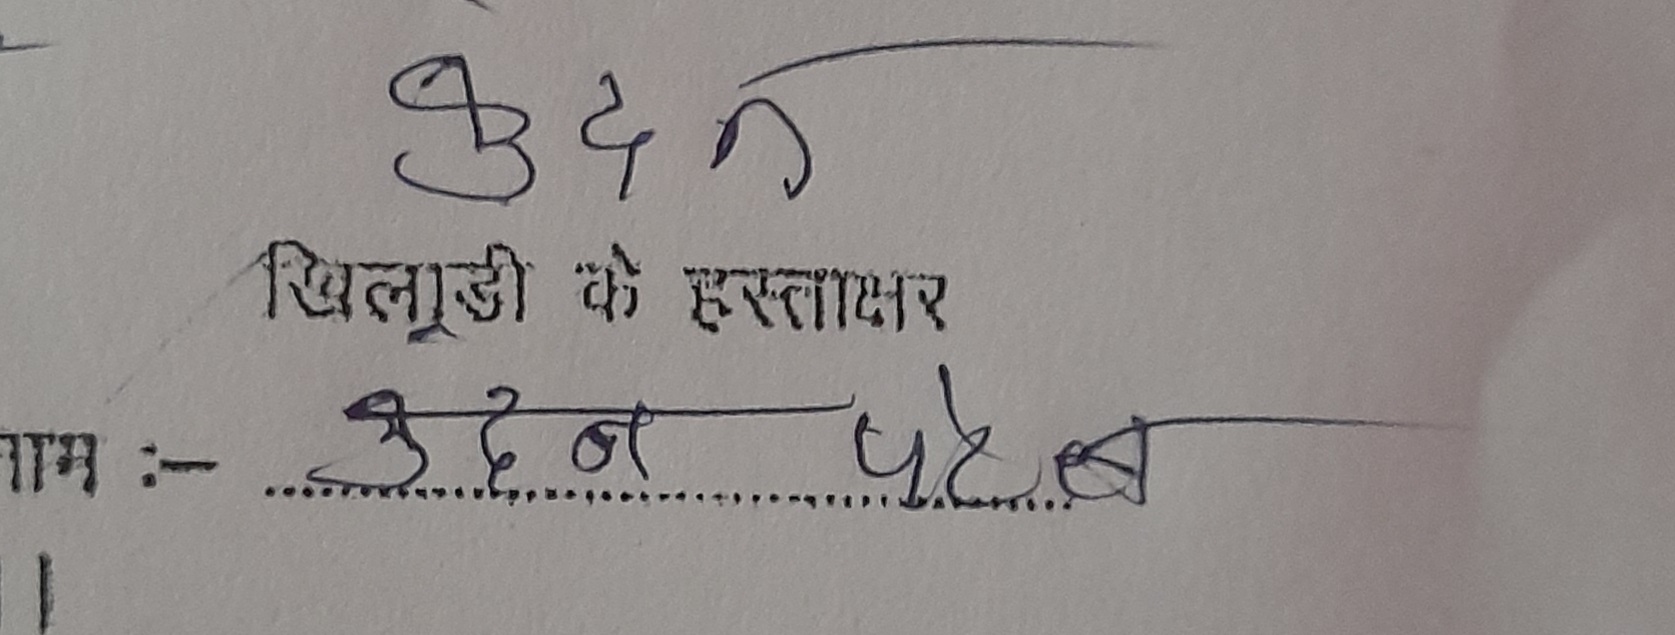 उदन
खिलाडी के हस्ताक्षर
नाम :- उदन पटेल